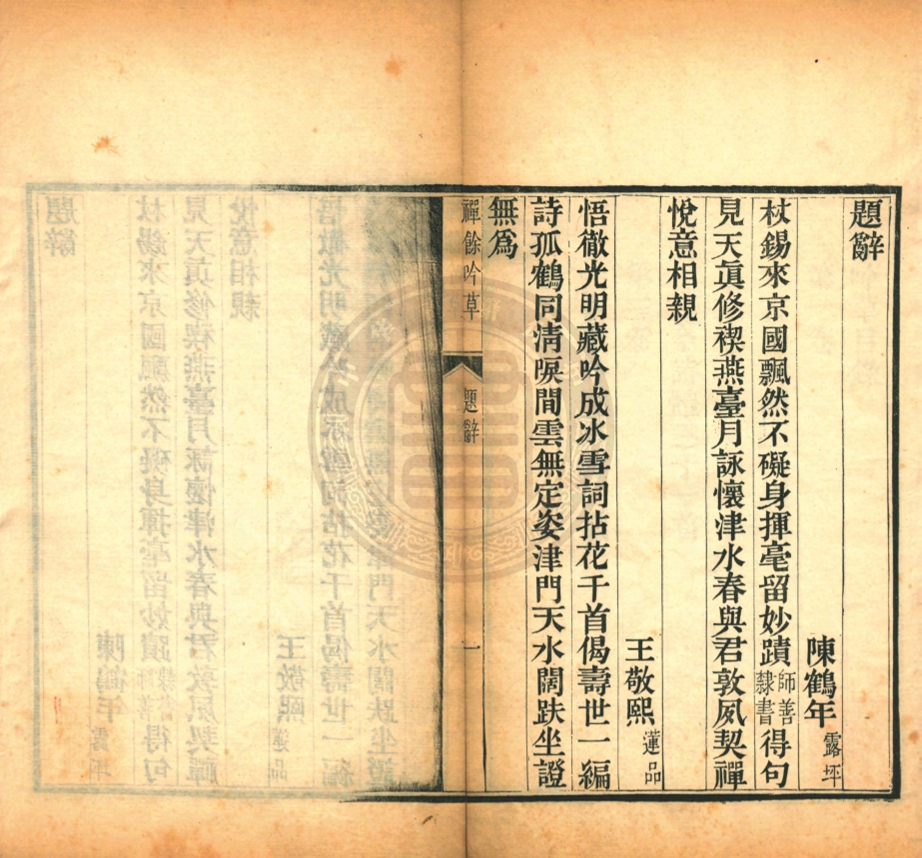 題辭
陳鶴年露坪
杖錫來京國飄然不礙身揮毫留妙蹟師善隸書得句
見天眞修禊燕臺月詠懷津水春與君敦夙契禪
悅意相親
王敬熙蓮品
悟徹光明藏吟成冰雪詞拈花千首偈壽世一編
詩孤鶴同淸唳間雲無定姿津門天水闊趺坐證
無爲
禪餘吟草
題辭
一